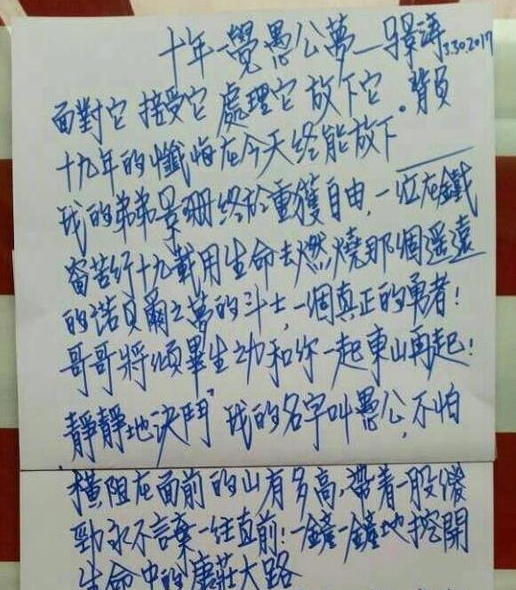 十年一覺愚公夢—景濤3.30.2017
面對它 接受它 處理它 放下它。背負
十九年的懺悔在今天终能放下
我的弟弟景珊终於重獲自由,一位在鐵
窗苦行十九載用生命去燃燒那個遥遠
的諾貝爾之夢的斗士,一個真正的勇者!
哥哥將傾畢生之功和你一起東山再起!
靜靜地決鬥 我的名字叫愚公,不怕
橫阻在面前的山有多高,帶着一股傻
勁永不言棄一往直前!一鏟一鏟地挖開
生命中的康莊大路